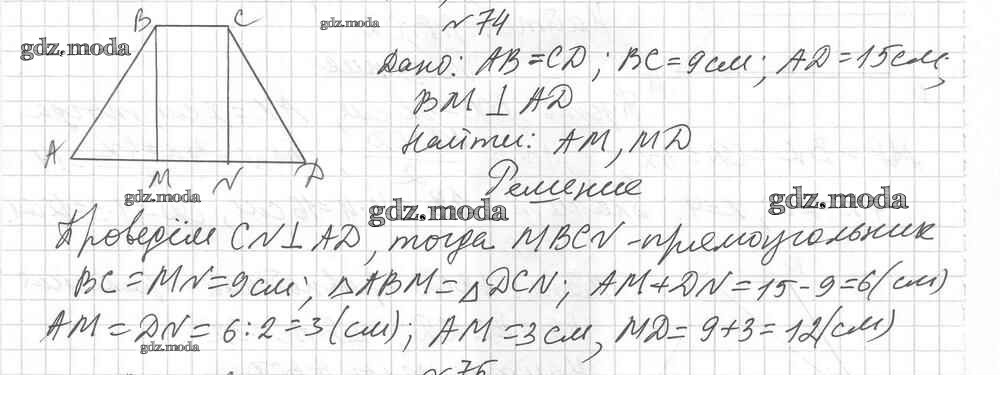 № 74
B C
gdz.moda
gdz.moda
Дано: AB = CD; BC = 9 см; AD = 15 см;
BM ⊥ AD
Найти: AM, MD
A M N D
Решение
gdz.moda
gdz.moda
gdz.moda
Проведём CN ⊥ AD, тогда MBCN - прямоугольник
BC = MN = 9 см; △ABM = △DCN; AM + DN = 15 - 9 = 6 (см)
AM = DN = 6 : 2 = 3 (см); AM = 3 см, MD = 9 + 3 = 12 (см)
gdz.moda
№ 75